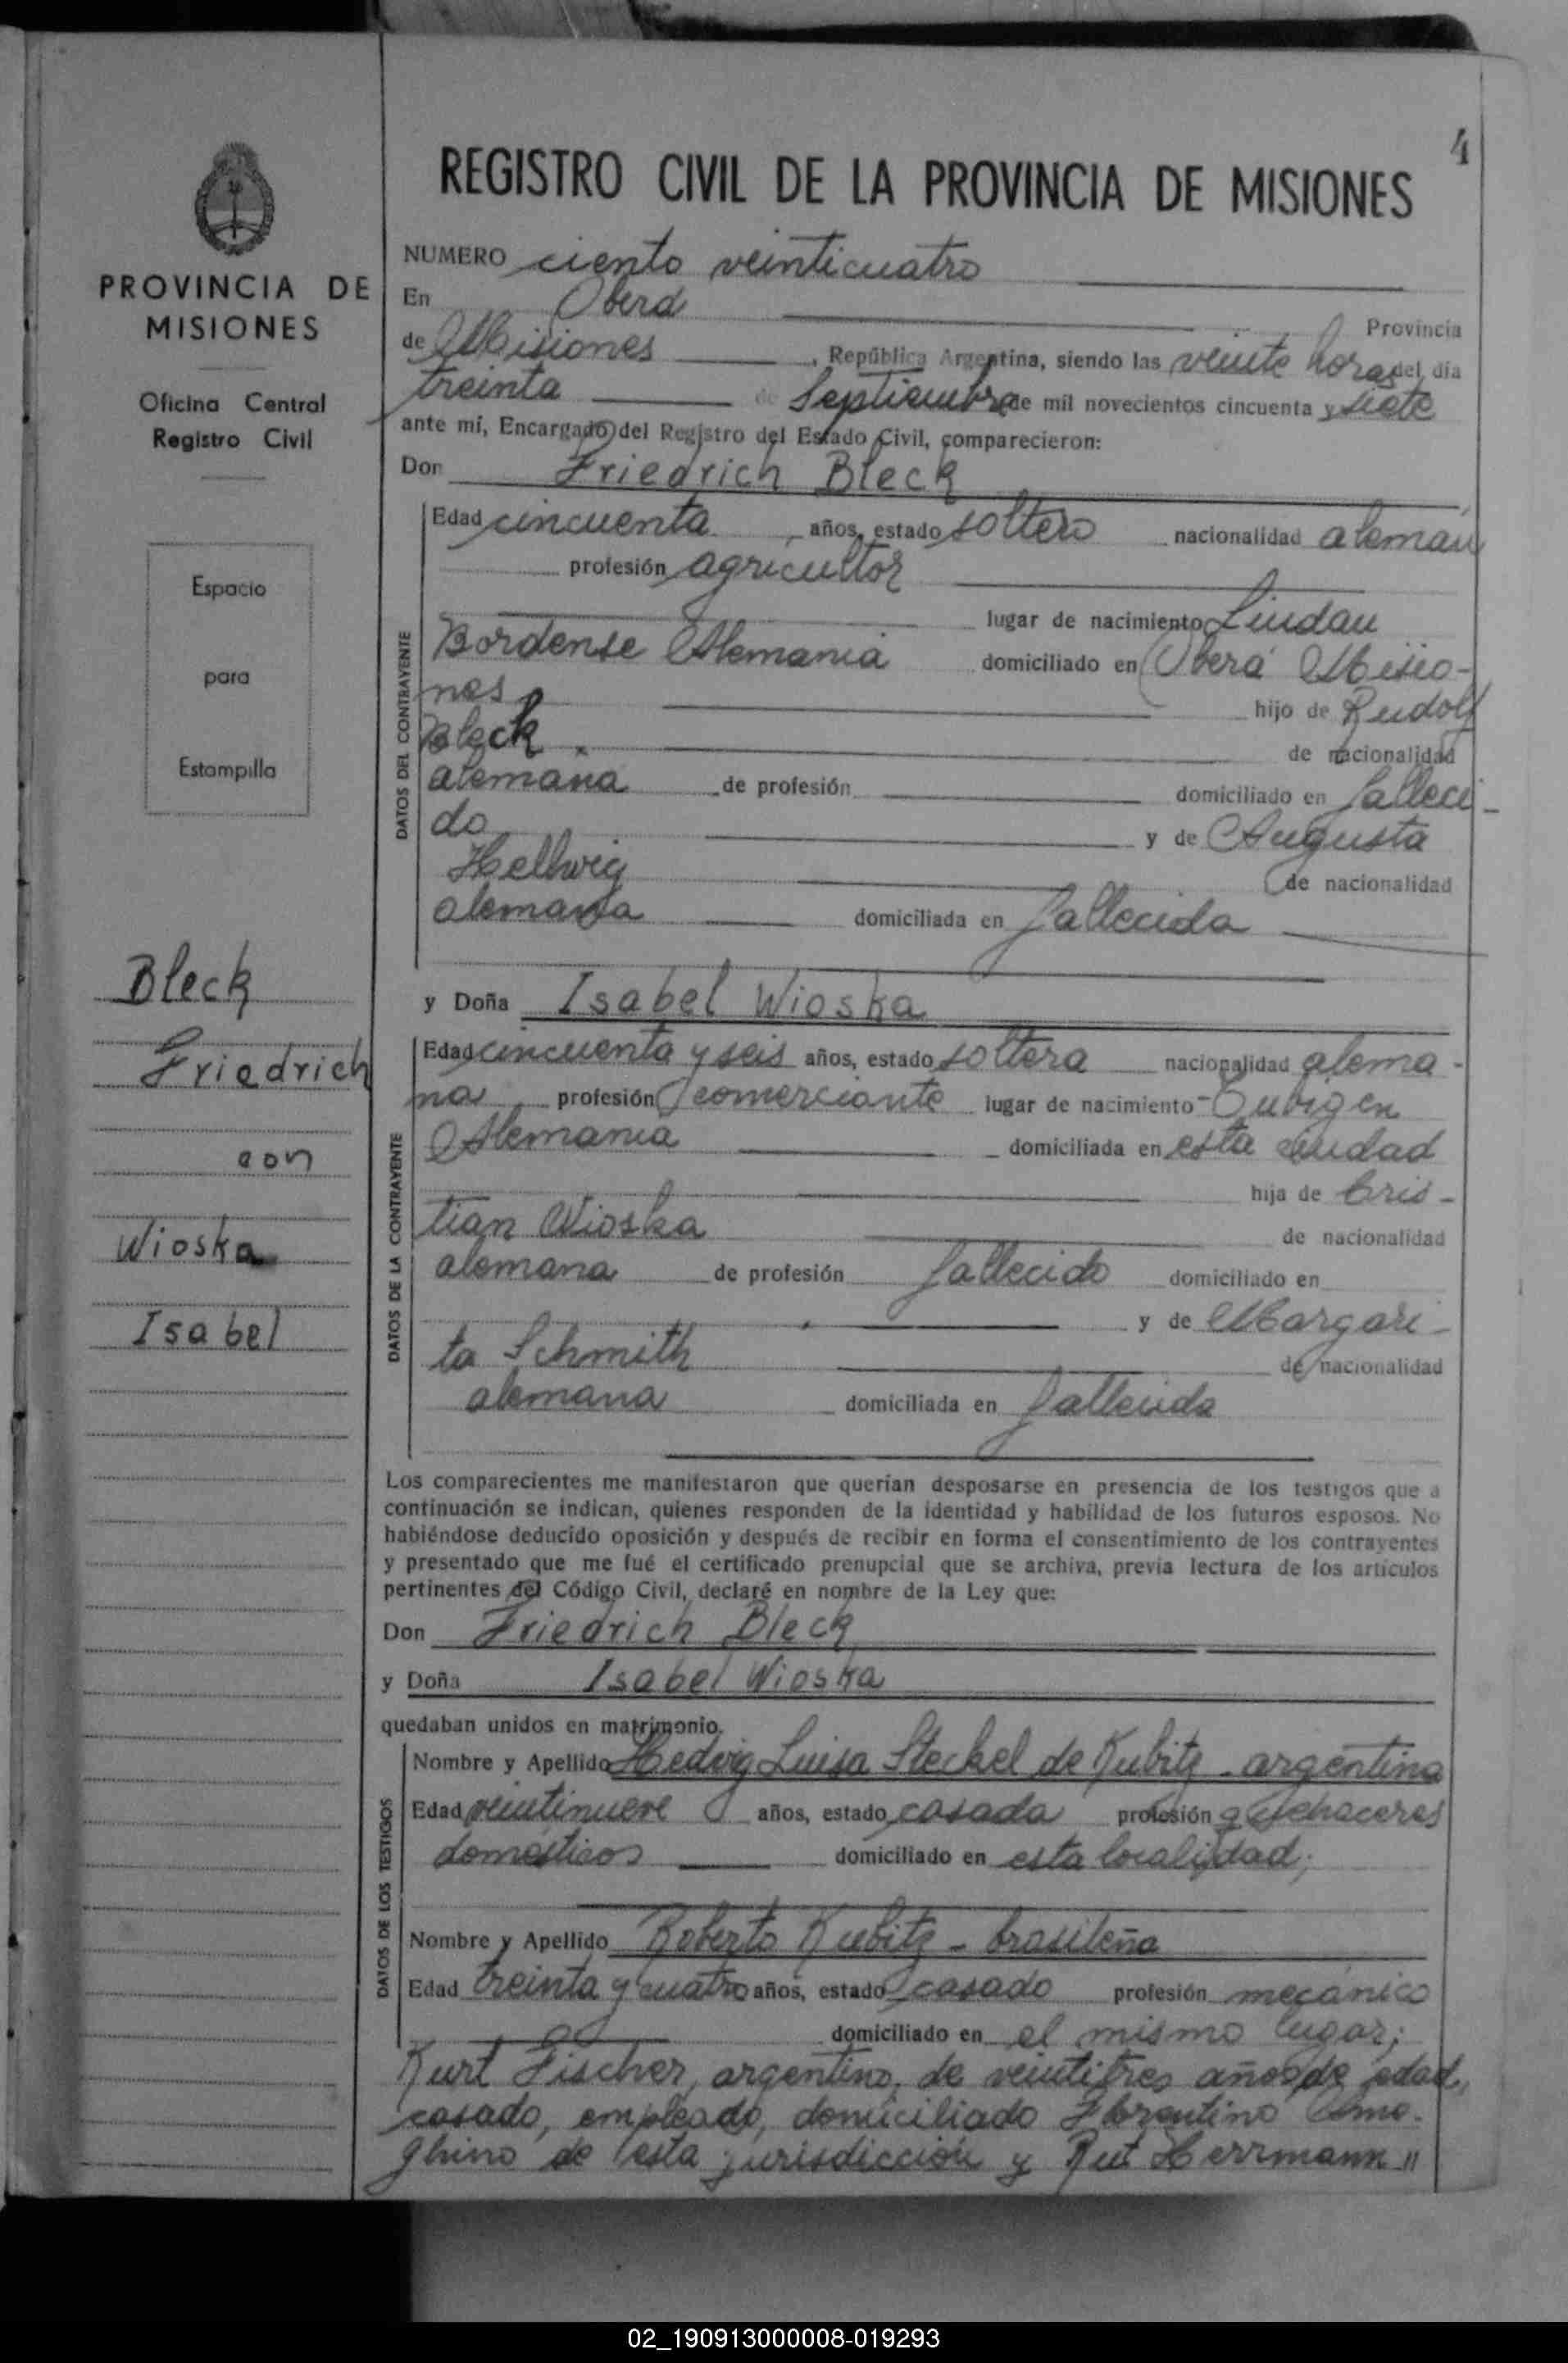 4
PROVINCIA DE
MISIONES
Oficina Central
Registro Civil
Espacio
para
Estampilla
Bleck
Friedrich
con
Wioska
Isabel
REGISTRO CIVIL DE LA PROVINCIA DE MISIONES
NUMERO ciento veinticuatro
En Oberá Provincia
de Misiones, República Argentina, siendo las veinte horas del día
treinta de Septiembre de mil novecientos cincuenta y siete
ante mí, Encargado del Registro del Estado Civil, comparecieron:
Don Friedrich Bleck
DATOS DEL CONTRAYENTE
Edad cincuenta años, estado soltero nacionalidad alemán
profesión agricultor
lugar de nacimiento Lindau
Bordense Alemania domiciliado en Oberá Misio-
nes hijo de Rudolf
Bleck de nacionalidad
alemana de profesión domiciliado en falleci-
do y de Augusta
Hellwig de nacionalidad
alemana domiciliada en fallecida
y Doña Isabel Wioska
DATOS DE LA CONTRAYENTE
Edad cincuenta y seis años, estado soltera nacionalidad alema-
na profesión comerciante lugar de nacimiento
Alemania domiciliada en esta ciudad
hija de Cris-
tian Wioska de nacionalidad
alemana de profesión fallecido domiciliado en
y de Margari-
ta Schmith de nacionalidad
alemana domiciliada en fallecida
Los comparecientes me manifestaron que querían desposarse en presencia de los testigos que a
continuación se indican, quienes responden de la identidad y habilidad de los futuros esposos. No
habiéndose deducido oposición y después de recibir en forma el consentimiento de los contrayentes
y presentado que me fué el certificado prenupcial que se archiva, previa lectura de los artículos
pertinentes del Código Civil, declaré en nombre de la Ley que:
Don Friedrich Bleck
y Doña Isabel Wioska
quedaban unidos en matrimonio.
DATOS DE LOS TESTIGOS
Nombre y Apellido Hedwig Luisa Steckel de Kubitz - argentina
Edad veintinueve años, estado casada profesión quehaceres
domesticos domiciliado en esta localidad;
Nombre y Apellido Roberto Kubitz - brasileña
Edad treinta y cuatro años, estado casado profesión mecánico
domiciliado en el mismo lugar;
Kurt Fischer, argentino, de veintitres años de edad,
casado, empleado, domiciliado Florentino Ame-
ghino de esta jurisdicción y Rut Herrmann //
02_190913000008-019293